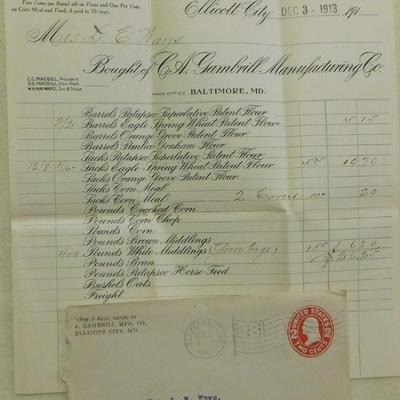 Five Cents per Barrel off on Flour and One Per Cent.
on Corn Meal and Feed, if paid in 10 days.
Ellicott City, DEC 3 - 1913 191
Mrs D E Ways
Bought of C.A. Gambrill Manufacturing Co.
C.C. MACGILL, President
W.H. HAYWARD, Sec. & Treas.
MAIN OFFICE, BALTIMORE, MD.
Barrels Patapsco Superlative Patent Flour
2/2 Barrels Eagle Spring Wheat Patent Flour 5 15
Barrels Orange Grove Patent Flour
Barrels Pimlico Graham Flour
Sacks Patapsco Superlative Patent Flour
12/8 Sacks Eagle Spring Wheat Patent Flour 10 70
Sacks Orange Grove Patent Flour
Sacks Corn Meal
Sacks Corn Meal 2 20
Pounds Cracked Corn
Pounds Corn Chop
Pounds Corn
Pounds Brown Middlings
400 Pounds White Middlings
Pounds Bran
Pounds Patapsco Horse Feed
Bushels Oats
Freight
After 5 Days, return to
A. GAMBRILL MFG. CO.
ELLICOTT CITY, MD.
UNITED STATES
TWO CENTS